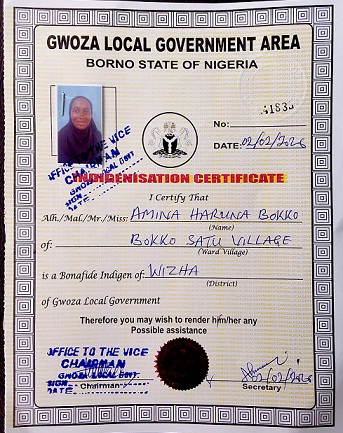 GWOZA LOCAL GOVERNMENT AREA
BORNO STATE OF NIGERIA
No:
DATE: 02/02/2026
OFFICE TO THE VICE
CHAIRMAN
GWOZA LOCAL GOVT
SIGN
DATE
INDIGENISATION CERTIFICATE
I Certify That
Alh./Mal./Mr./Miss: AMINA HARUNA BOKKO
(Name)
of: BOKKO SATU VILLAGE
(Ward Village)
is a Bonafide Indigen of: WIZHA
(District)
of Gwoza Local Government
Therefore you may wish to render him/her any
Possible assistance
OFFICE TO THE VICE
CHAIRMAN
GWOZA LOCAL GOVT.
SIGN
Chairman
DATE
02/02/2026
Secretary